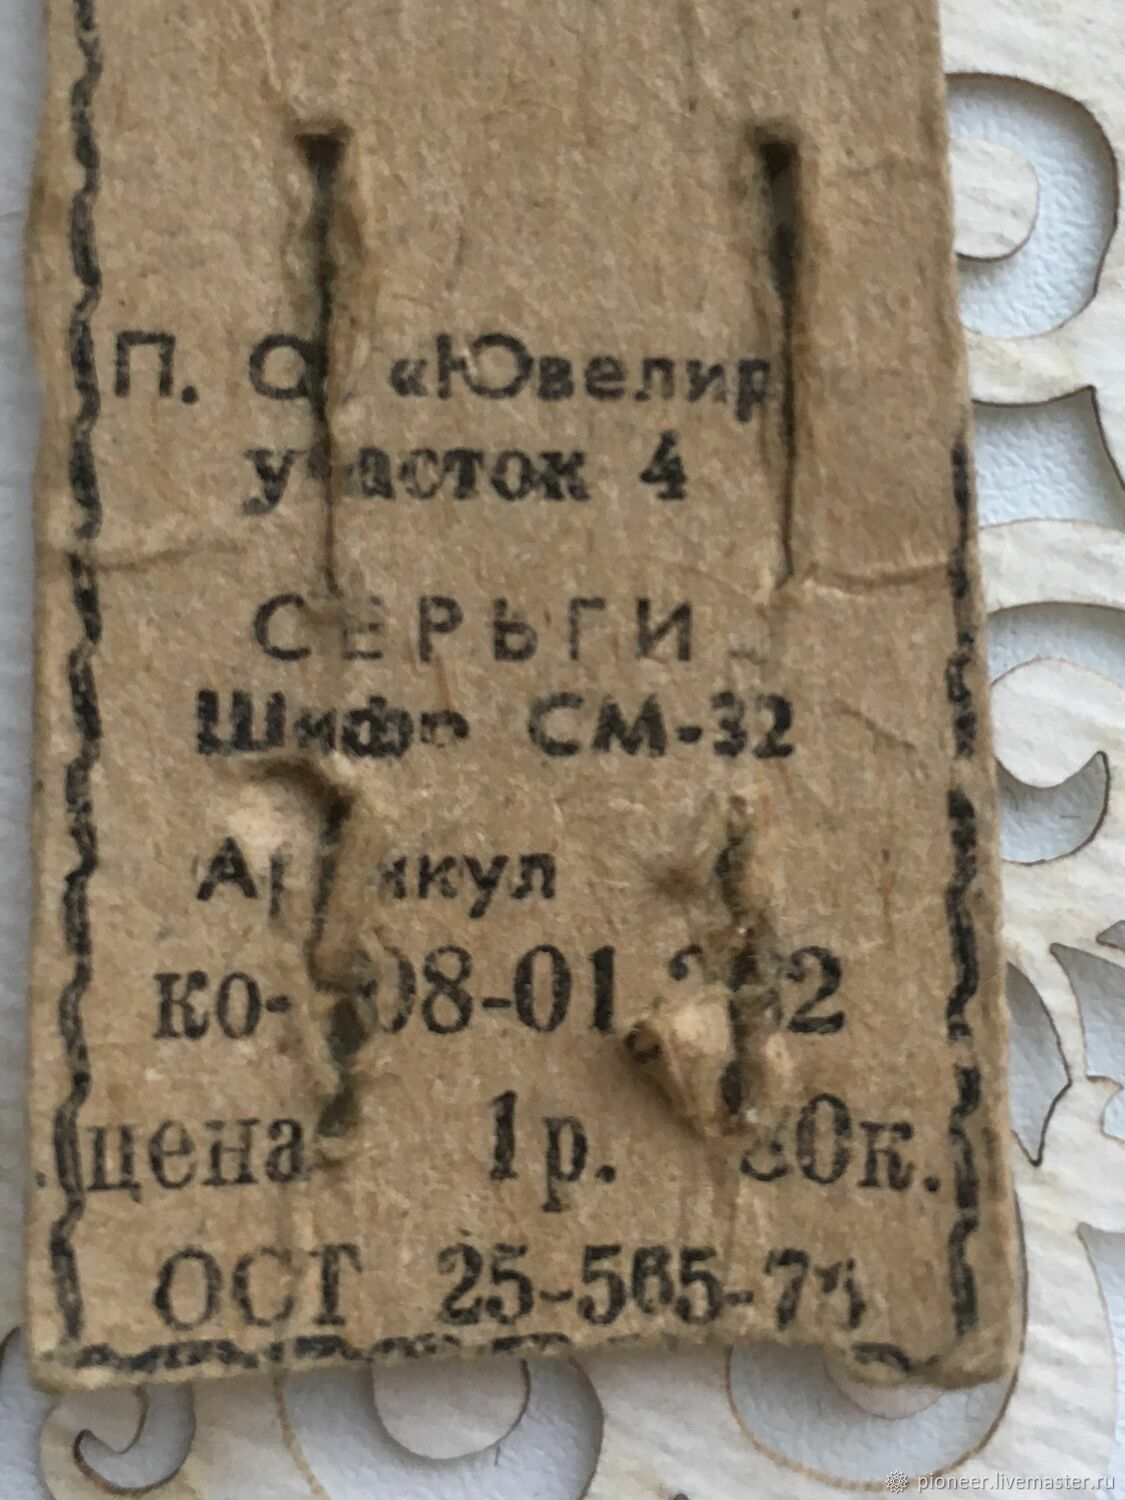 П. О. «Ювелир
участок 4
СЕРЬГИ
Шифр СМ-32
Артикул
цена 1р.
ОСТ
pioneer.livemaster.ru